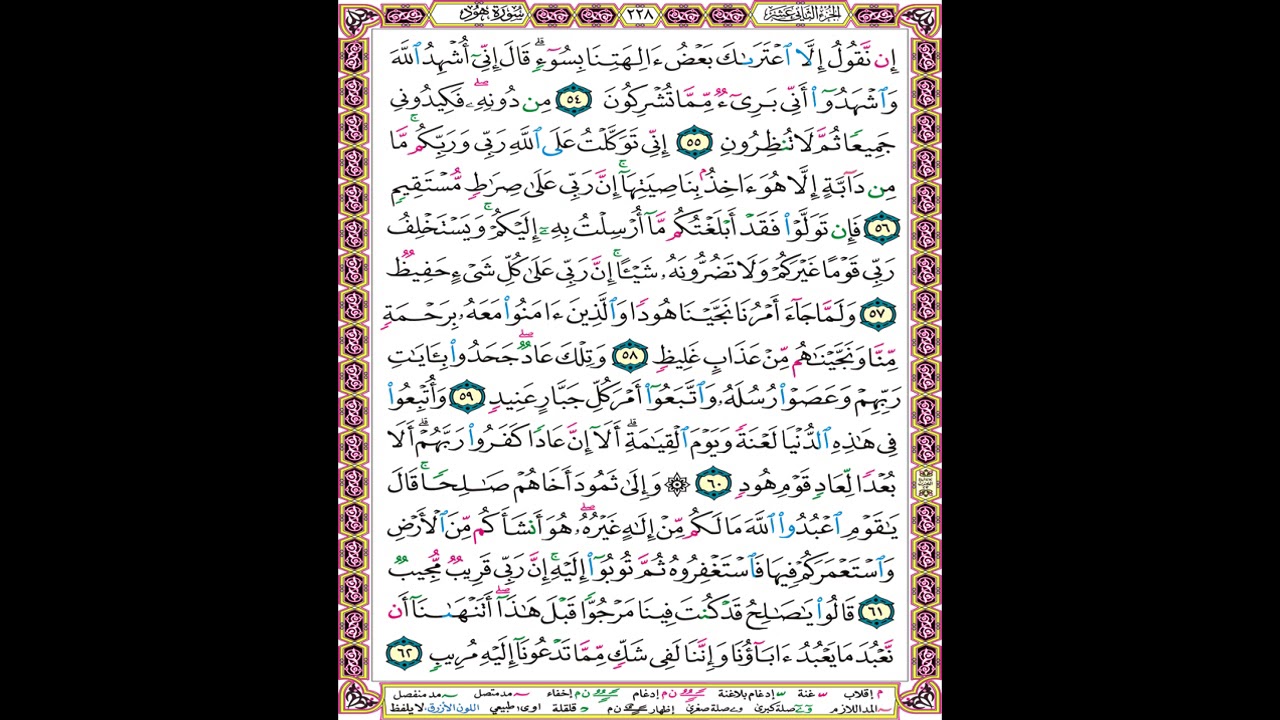 الجزء الثاني عشر ٢٢٨ سورة هود
إِن نَّقُولُ إِلَّا ٱعْتَرَىٰكَ بَعْضُ ءَالِهَتِنَا بِسُوٓءٍۗ قَالَ إِنِّىٓ أُشْهِدُ ٱللَّهَ
وَٱشْهَدُوٓا۟ أَنِّى بَرِىٓءٌ مِّمَّا تُشْرِكُونَ ٥٤ مِن دُونِهِۦۖ فَكِيدُونِى
جَمِيعًا ثُمَّ لَا تُنظِرُونِ ٥٥ إِنِّى تَوَكَّلْتُ عَلَى ٱللَّهِ رَبِّى وَرَبِّكُمۚ مَّا
مِن دَآبَّةٍ إِلَّا هُوَ ءَاخِذٌۢ بِنَاصِيَتِهَآۚ إِنَّ رَبِّى عَلَىٰ صِرَٰطٍ مُّسْتَقِيمٍ
٥٦ فَإِن تَوَلَّوْا۟ فَقَدْ أَبْلَغْتُكُم مَّآ أُرْسِلْتُ بِهِۦٓ إِلَيْكُمْۚ وَيَسْتَخْلِفُ
رَبِّى قَوْمًا غَيْرَكُمْ وَلَا تَضُرُّونَهُۥ شَيْـًٔاۚ إِنَّ رَبِّى عَلَىٰ كُلِّ شَىْءٍ حَفِيظٌ
٥٧ وَلَمَّا جَآءَ أَمْرُنَا نَجَّيْنَا هُودًا وَٱلَّذِينَ ءَامَنُوا۟ مَعَهُۥ بِرَحْمَةٍ
مِّنَّا وَنَجَّيْنَٰهُم مِّنْ عَذَابٍ غَلِيظٍ ٥٨ وَتِلْكَ عَادٌۖ جَحَدُوا۟ بِـَٔايَٰتِ
رَبِّهِمْ وَعَصَوْا۟ رُسُلَهُۥ وَٱتَّبَعُوٓا۟ أَمْرَ كُلِّ جَبَّارٍ عَنِيدٍ ٥٩ وَأُتْبِعُوا۟
فِى هَٰذِهِ ٱلدُّنْيَا لَعْنَةً وَيَوْمَ ٱلْقِيَٰمَةِۗ أَلَآ إِنَّ عَادًا كَفَرُوا۟ رَبَّهُمْۗ أَلَا
بُعْدًا لِّعَادٍ قَوْمِ هُودٍ ٦٠ ۞ وَإِلَىٰ ثَمُودَ أَخَاهُمْ صَٰلِحًاۚ قَالَ
يَٰقَوْمِ ٱعْبُدُوا۟ ٱللَّهَ مَا لَكُم مِّنْ إِلَٰهٍ غَيْرُهُۥۖ هُوَ أَنشَأَكُم مِّنَ ٱلْأَرْضِ
وَٱسْتَعْمَرَكُمْ فِيهَا فَٱسْتَغْفِرُوهُ ثُمَّ تُوبُوٓا۟ إِلَيْهِۚ إِنَّ رَبِّى قَرِيبٌ مُّجِيبٌ
٦١ قَالُوا۟ يَٰصَٰلِحُ قَدْ كُنتَ فِينَا مَرْجُوًّا قَبْلَ هَٰذَآۖ أَتَنْهَىٰنَآ أَن
نَّعْبُدَ مَا يَعْبُدُ ءَابَآؤُنَا وَإِنَّنَا لَفِى شَكٍّ مِّمَّا تَدْعُونَآ إِلَيْهِ مُرِيبٍ ٦٢
م إقلاب غنة إدغام بلاغنة ن م إدغام ن م إخفاء مد متصل مد منفصل
المد اللازم صلة كبرى صلة صغرى إظهار ن م قلقلة اوى طبيعي اللون الأزرق لا يلفظ